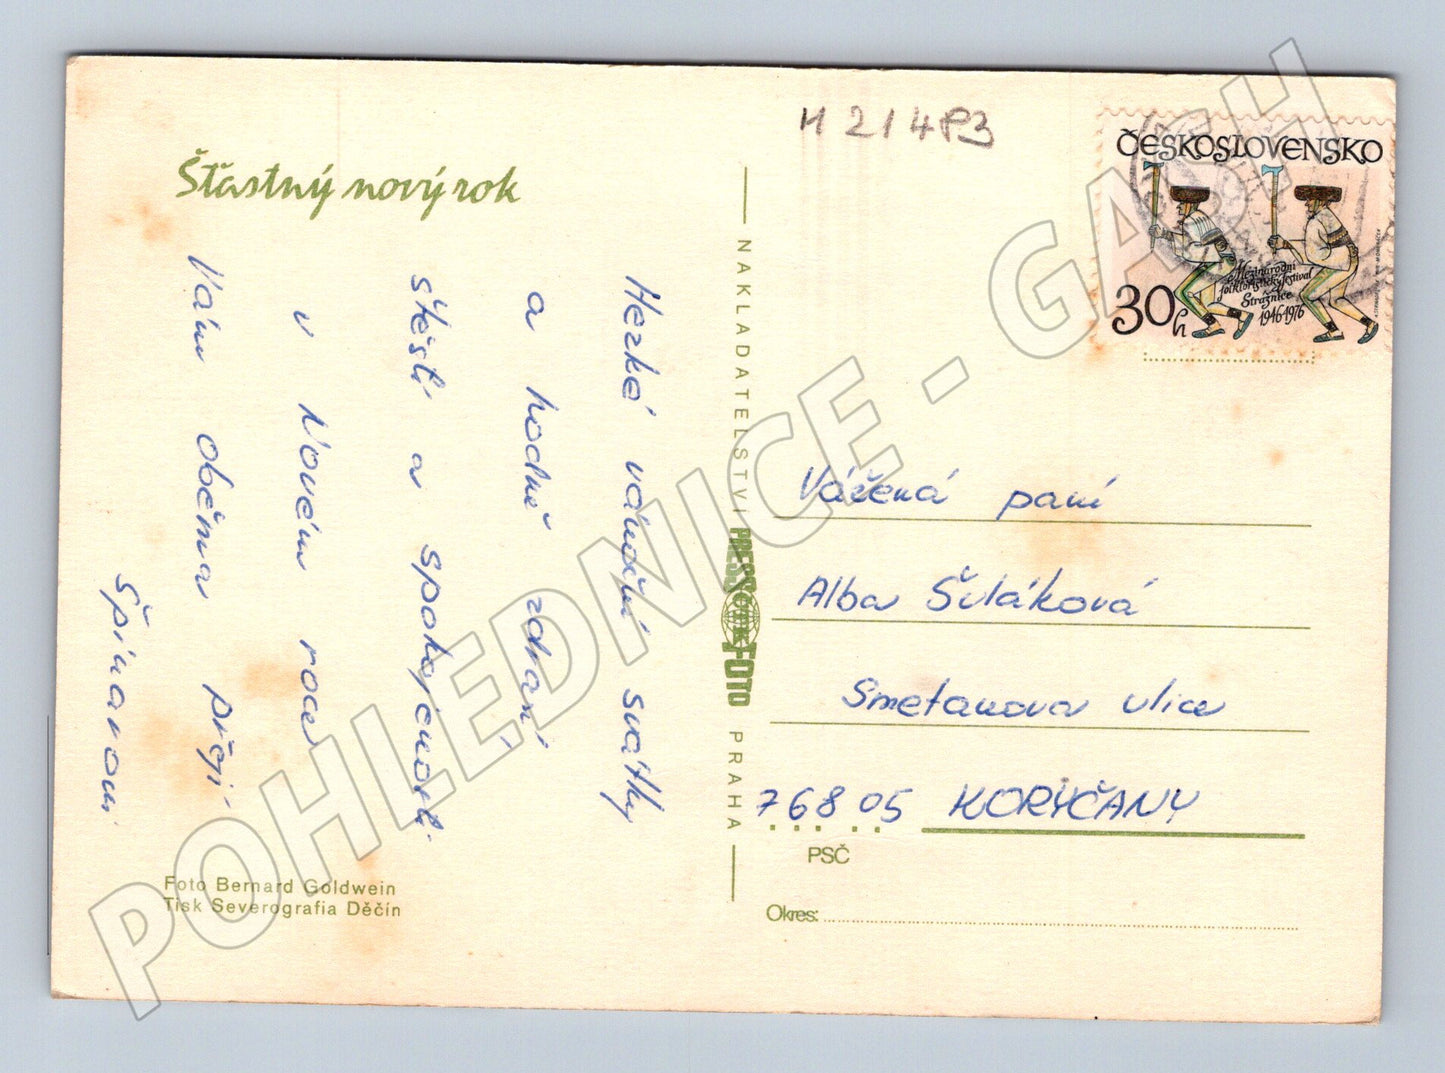 H 214P3
Šťastný nový rok
Hezké vánoční svátky
a hodně zdraví
štěstí a spokojenosti
v Novém roce
Vám oběma přejí
Špinarovi
Foto Bernard Goldwein
Tisk Severografia Děčín
NAKLADATELSTVÍ PRESSFOTO PRAHA
ČESKOSLOVENSKO
Mezinárodní
folkloristický festival
Strážnice
1946-1976
30h
Vážená paní
Alba Šuláková
Smetanova ulice
76805 KORYČANY
PSČ
Okres:
POHLEDNICE - GASH